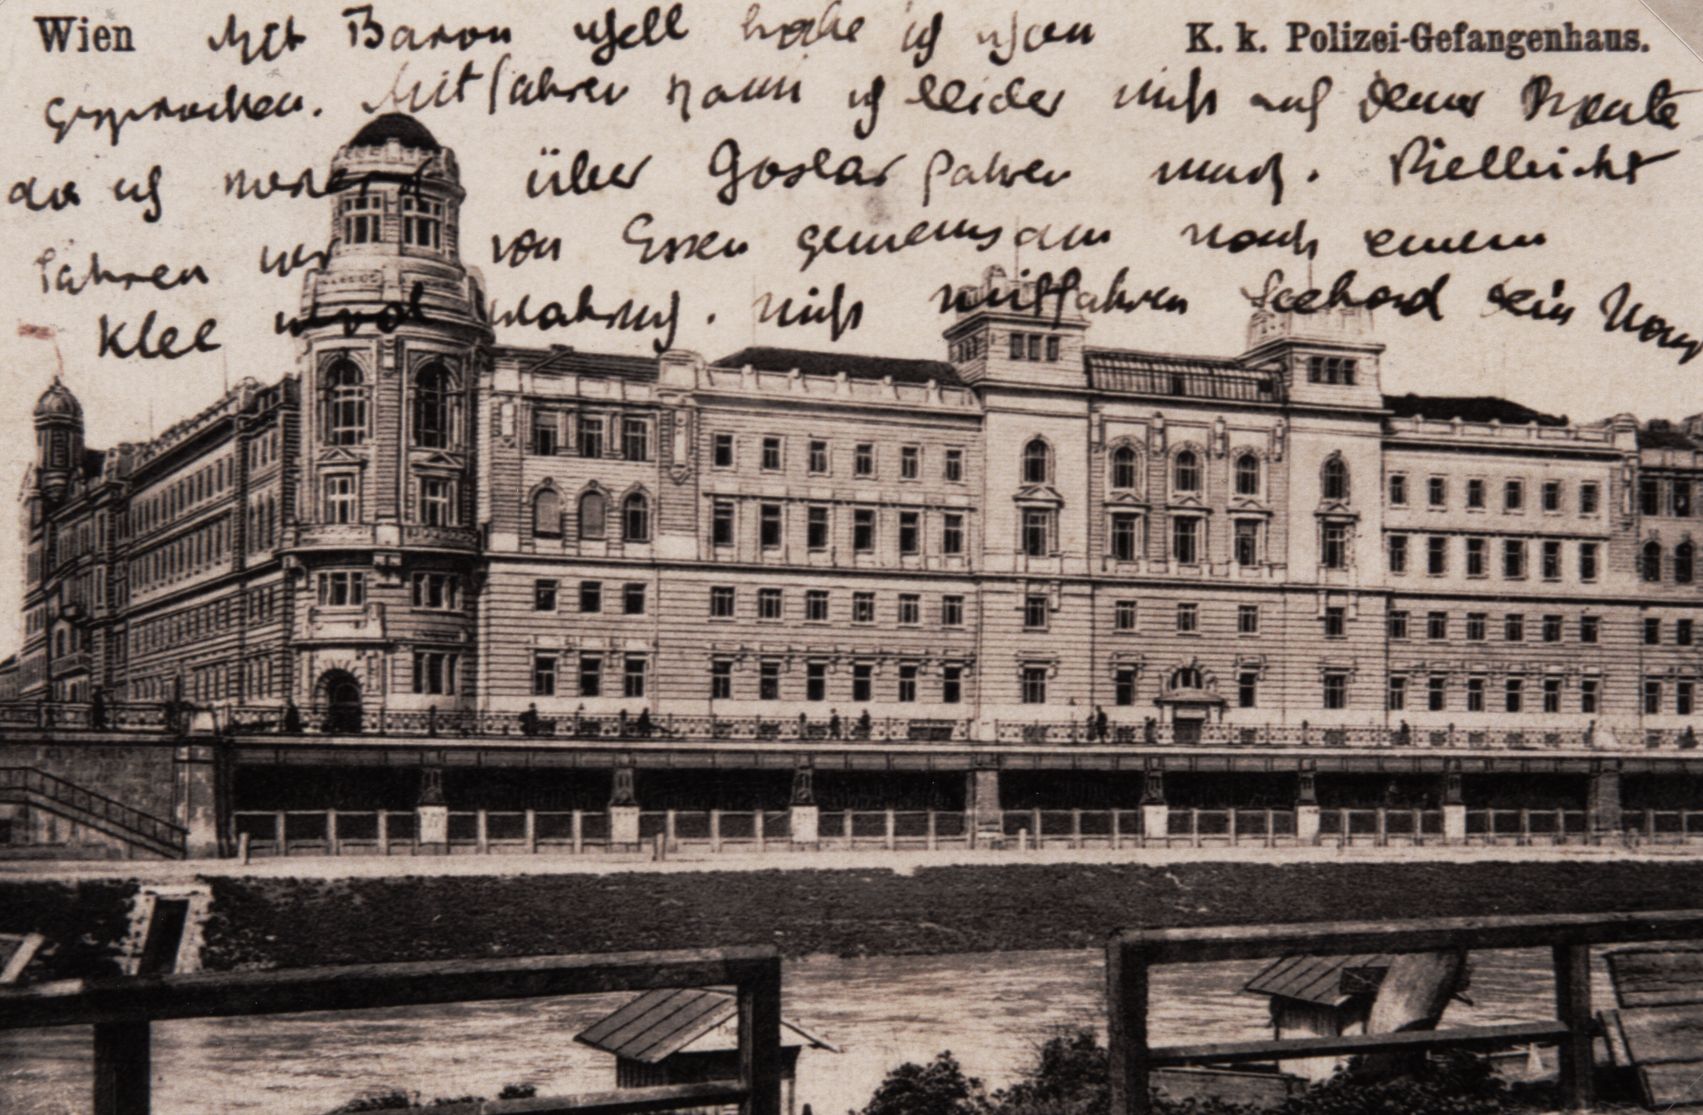 Wien Mit Baron habe ich schon K. k. Polizei-Gefangenhaus.
gesprochen. Mitfahren kann ich leider nicht auf deiner Route
da ich über Goslar fahren muß. Vielleicht
fahren wir von Essen gemeinsam nach einem
Klee wird nicht mitfahren sein